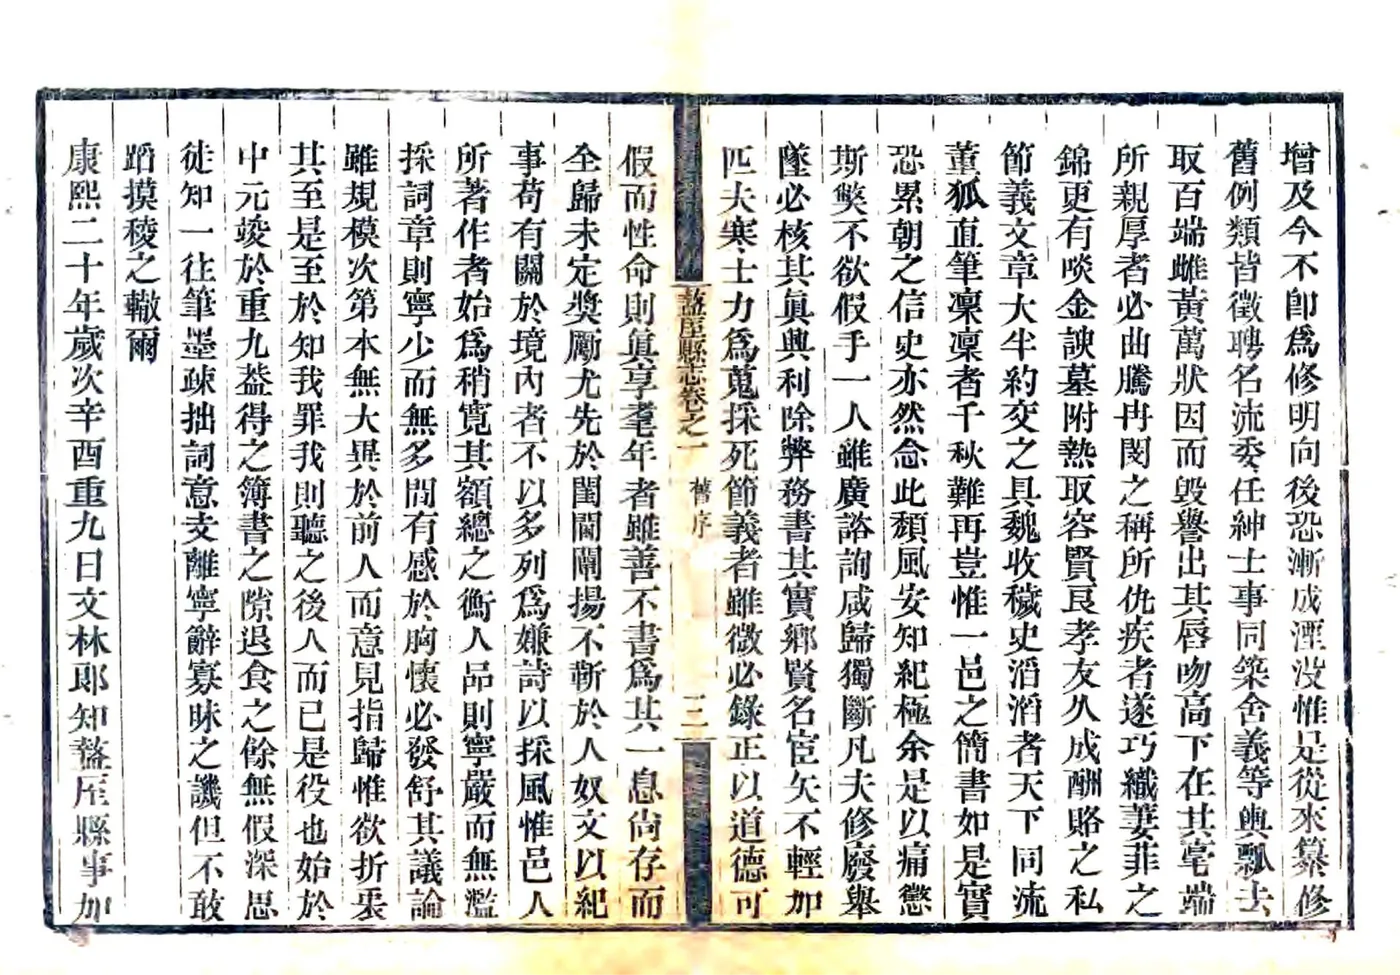 增及今不卽爲修明向後恐漸成湮沒惟是從來纂修
舊例類皆徵聘名流委任紳士事同築舍義等輿瓢去
取百端雌黃萬狀因而毀譽出其唇吻高下在其毫端
所親厚者必曲騰冉閔之稱所仇疾者遂巧織萋菲之
錦更有啖金諛墓附熱取容賢良孝友久成酬賂之私
節義文章大半約交之具魏收穢史滔滔者天下同流
董狐直筆凜凜者千秋難再豈惟一邑之簡書如是實
恐累朝之信史亦然念此頹風安知紀極余是以痛懲
斯獘不欲假手一人雖廣諮詢咸歸獨斷凡夫修廢舉
墜必核其眞興利除弊務書其實鄉賢名宦矢不輕加
匹夫寒士力爲蒐採死節義者雖微必錄正以道德可
盩厔縣志卷之一 舊序 三
假而性命則眞享耄年者雖善不書爲其一息尙存而
全歸未定獎勵尤先於閨闈闡揚不靳於人奴文以紀
事苟有關於境內者不以多列爲嫌詩以採風惟邑人
所著作者始爲稍寬其額總之衡人品則寧嚴而無濫
採詞章則寧少而無多間有感於胸懷必發舒其議論
雖規模次第本無大異於前人而意見指歸惟欲折衷
其至是至於知我罪我則聽之後人而已是役也始於
中元竣於重九葢得之簿書之隙退食之餘無假深思
徒知一往筆墨疎拙詞意支離寧辭寡昧之譏但不敢
蹈摸稜之轍爾
康熙二十年歲次辛酉重九日文林郎知盩厔縣事加